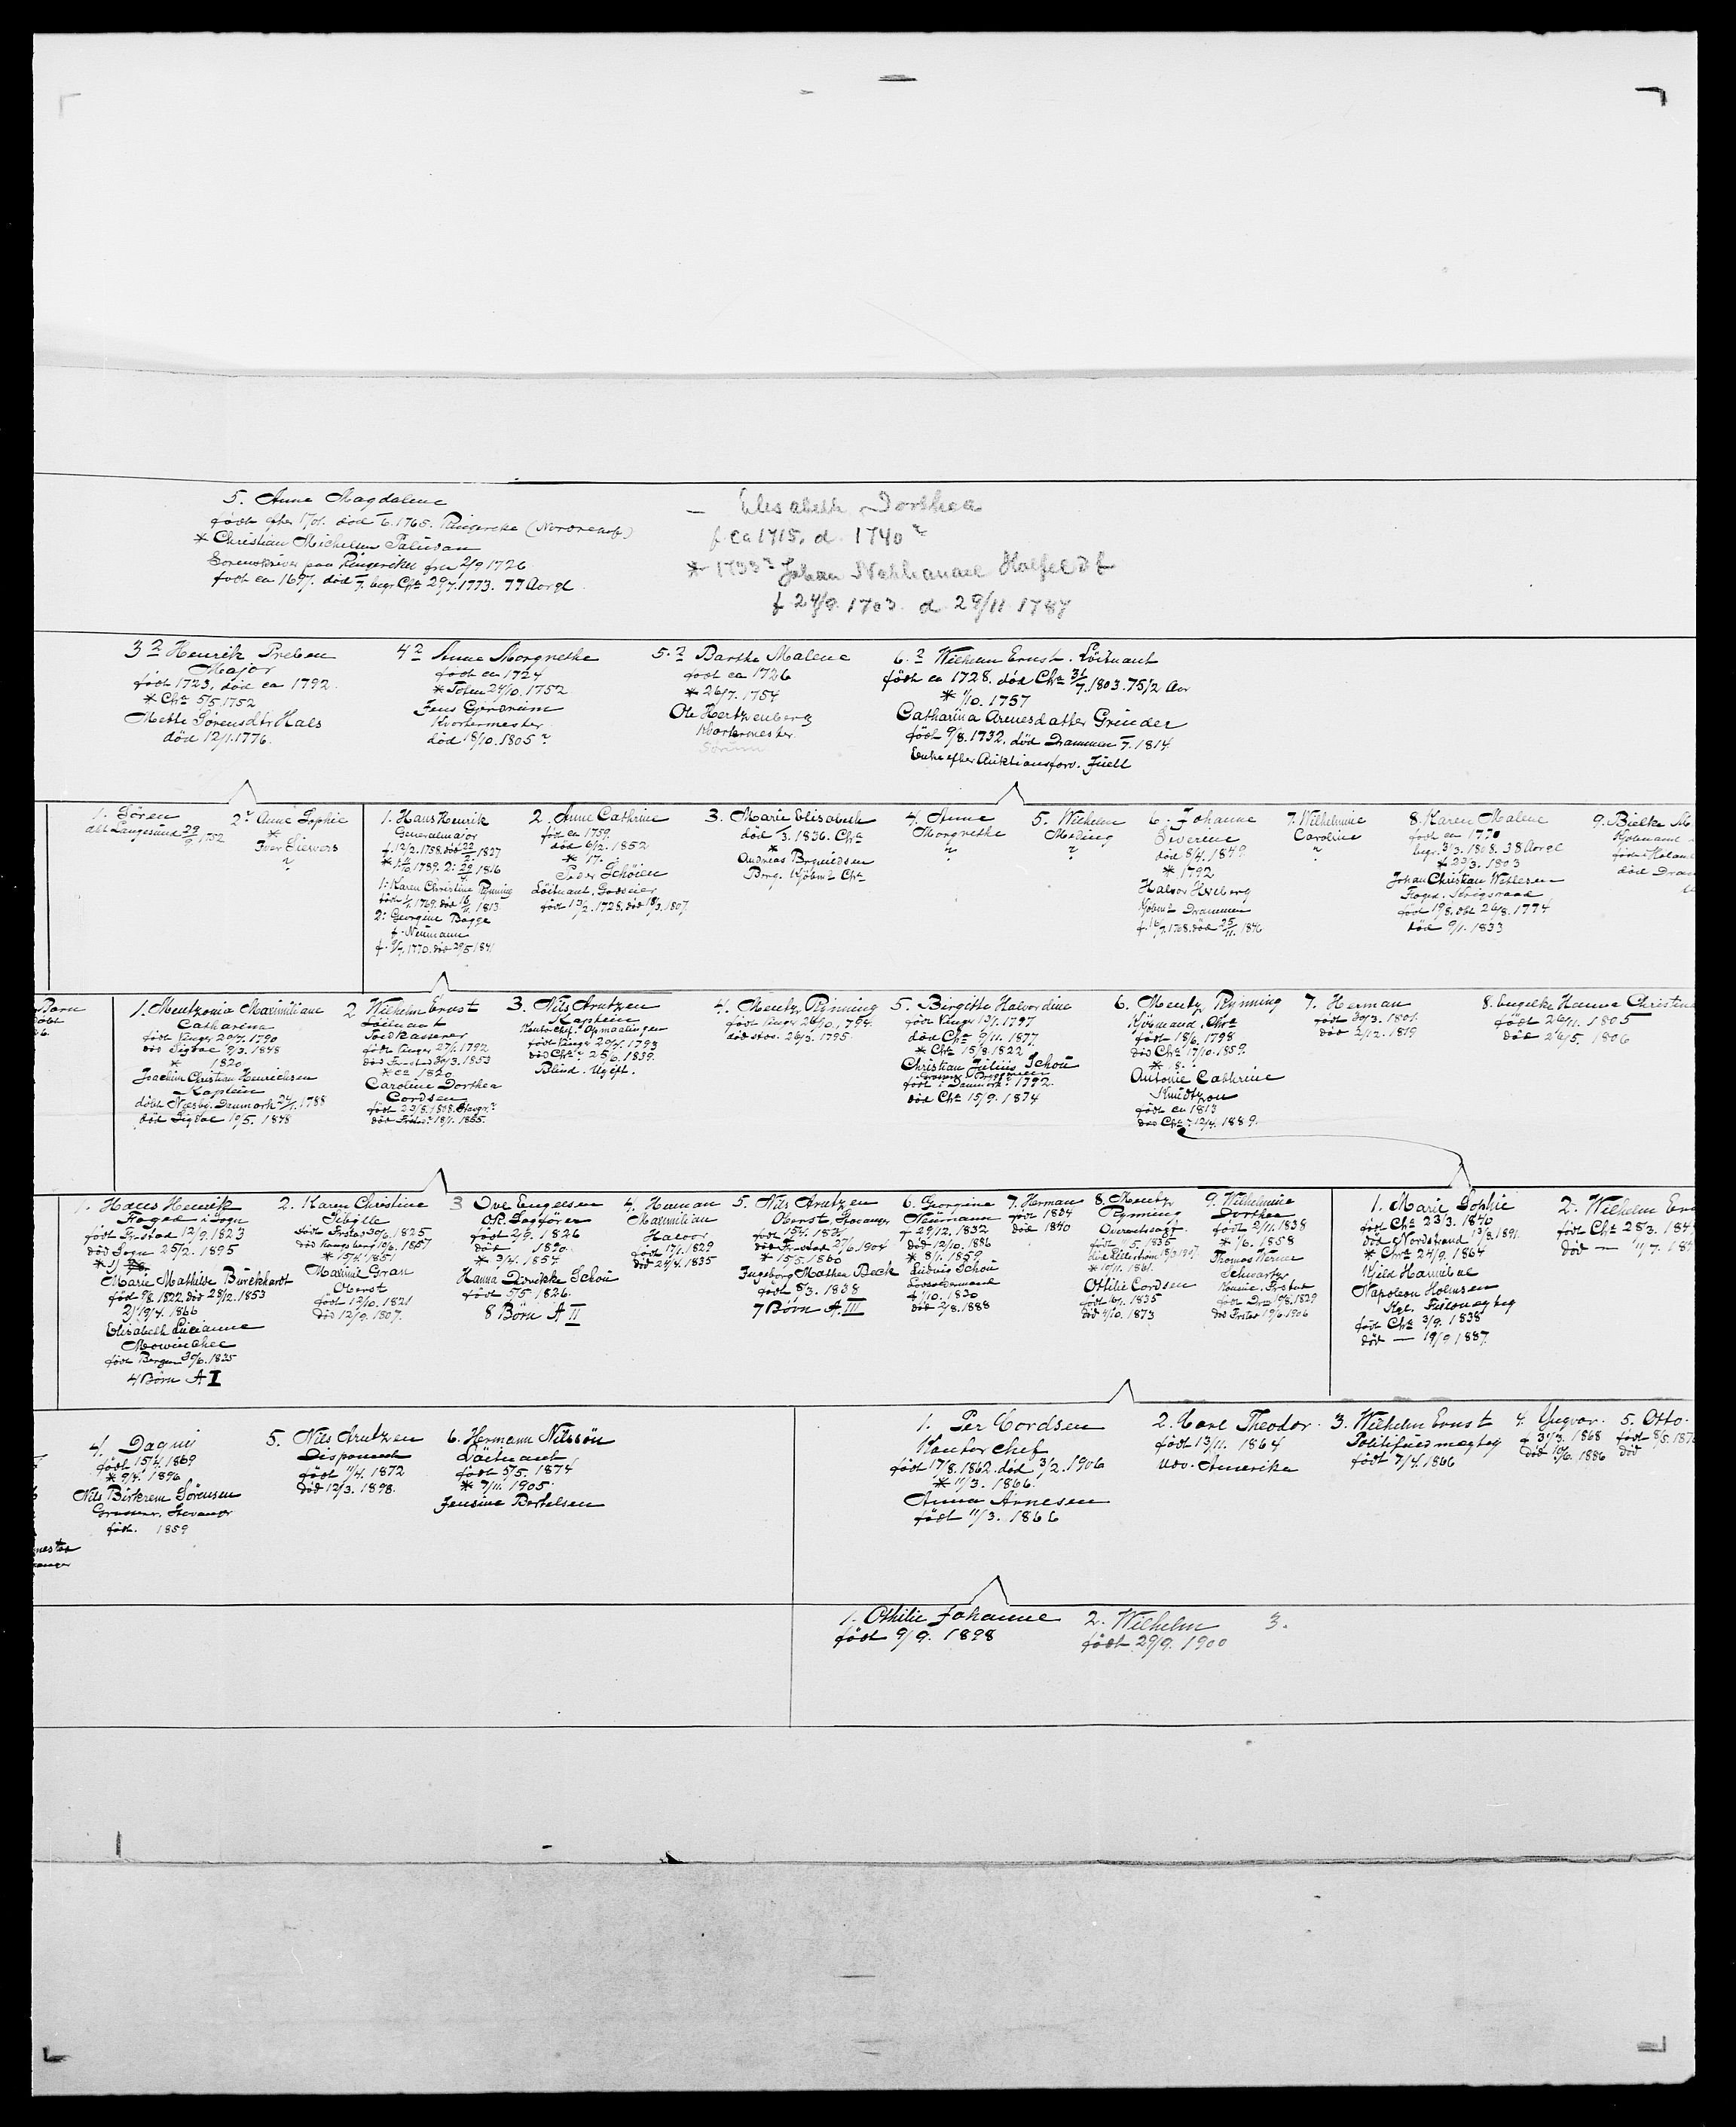 5. Anna Magdalene
født efter 1701. død /6.1765. Ringerike (Norderhov)
* Christian Michelsen Paludan
Sorenskriver paa Ringerike fra 2/9 1726
født ca 1697. død /7. begr. Chra 29/7.1773. 77 Aar gl.
— Elisabeth Dorthea
f. ca 1715, d. 1740?
* 1733? Johan Nathanael Holfeldt
f 24/9. 1703. d. 29/11 1787
3? Henrik Preben
Major
født 1723, død ca 1792.
* Chra 5/5.1752
Mette Sørensdtr Hals
død 12/1.1776.
4? Anne Margrethe
født ca 1724
* Toten 24/10. 1752
Jens Gerdrum
Kvartermester
død 18/10. 1805?
5.? Barthe Malene
født ca 1726
* 26/7. 1754
Ole Hertzenberg
Kvartermester
Sørum
6.? Wilhelm Ernst. Løitnant
født ca 1728. død Chra 31/7.1803. 75 1/2 Aar
* 1/10. 1757
Catharina Arnesdatter Grinder
født 9/8. 1732. død Drammen /7. 1814
Enke efter Auktionsforv. Juell
1. Søren
døbt Langesund 29/9 1752
2? Anne Sophie
*
Iver Sievers
?
1. Hans Henrik
Generalmajor
f. 12/2. 1758. død 22/2. 1827
1: Karen Christine Rynning
født 1/1. 1769. død 16/11. 1813
2: Georgine Bagge
f. Neumann
f. 9/4. 1770. død 29/5 1841
2. Anne Cathrine
født ca 1759.
død 6/2. 1852
* /17.
Peder Schøien
Løitnant, Godseier
født 13/2. 1728. død 18/3. 1807
3. Marie Elisabeth
død /3. 1836. Chra
*
Andreas Brynildsen
Borg. Kjøbmd Chra
4. Anne
Margrethe
?
5. Wilhelm
Meding
?
6. Johanne
Severine
død 8/4. 1849
* 1792
Halvor Hesberg
Kjøbmd Drammen
f. 16/7. 1768. død 25/11. 1846
7. Wilhelmine
Caroline
?
8. Karen Malene
født ca 1770
begr. 3/3. 1808. 38 Aar gl
* 23/3. 1803
Johan Christian Wetlesen
Foged. Krigsraad
født 19/8. døbt 26/8. 1774
død 9/1. 1833
9. Bielke M
Kjøbmand
født Holand
død Dram
1. Mentzonia Maximiliane
Catharina
født Vinger 20/7. 1790
død Sigdal 9/3. 1848
* 1820
Joachim Christian Henrichsen
Kaptein
døbt Næsbö. Danmark 24/1. 1788
død Sigdal 10/5. 1878
2 Wilhelm Ernst
Løitnant
Toldkasserer
født Vinger 27/1. 1792
død Grostad 30/3. 1853
* ca 1820
Caroline Dorthea
Cordsen
født 23/8. 1808.
død 18/1. 1865.
3. Nils Arntzen
Kaptein
Kontorchef. Opmaalingen
født Vinger 29/4. 1793
død Chra? 25/6. 1839.
Blind. Ugift.
4. Mentz Rynning
født Vinger 24/10. 1794.
død sts. 26/3. 1795
5. Birgitte Halvordine
født Vinger 13/1. 1797
død Chra 9/11. 1877.
* Chra 15/8. 1822
Christian Julius Schou
født i Danmark? 1792.
død Chra 15/9. 1874
6. Mentz Rynning
Kjøbmand. Chra
født 18/6. 1798
død Chra 17/10. 1859.
* 18.
Antonie Cathrine
Knudtzon
født ca 1813
død Chra 12/4. 1889.
7. Herman
født 30/3. 1801.
død 2/12. 1819
8. Engelke Hanna Christin
født 26/11. 1805
død 26/5. 1806
1. Hans Henrik
Foged i Sogn
født Grstad 12/9. 1823
død Sogn 25/2. 1895
Marie Mathilde Burckhardt
født 9/8. 1822. død 28/12. 1853
2) 19/4. 1866
Elisabeth Lucianne
Mowinckel
født Bergen 30/6. 1835
4 Børn A I
2. Karen Christine
Sibylle
født Grstad 30/6. 1825
død Kongsberg 10/6. 1867
* 15/4. 1851
Maximil Gran
Oberst
født 12/10. 1821
død 12/9. 1907.
3 Ove Engelsen
OR. Sagfører
født 2/9. 1826
død 1890.
* 3/4. 1854
Hanna Didrikke Schou
født 5/5. 1826.
8 Børn A II
4. Herman
Maximilian
Halvor
født 17/1. 1829
død 24/4. 1835
5. Nils Arntzen
Oberst, Stavanger
død Grostad 27/6. 1904
* 15/5. 1860
Ingeborg Mathea Beck
født 8/3. 1838
7 Børn A III
6. Georgine
Neumann
f 29/12. 1832
død 12/10. 1886
* 8/1. 1859
Ludvig Schou
Lodsoldermand
f 1/10. 1830
død 2/8. 1888
7. Herman
født 1834
død 1840
8. Mentz
Rynning
Overretssagf.
født 1/5. 1835
* 10/11. 1861.
Othilie Cordsen
født 6/1. 1835
død 1/10. 1873
9. Wilhelmine
Dorthea
født 2/11. 1838
* 1/6. 1858
Thomas Werner
Schwartz
født Drn 10/8. 1829
død 19/6 1906
1. Marie Sophie
født Chra 23/3. 1840
død Nordstrand 13/8. 1891.
* Chra 24/9. 1864
Kjeld Hannibal
Napoleon Holmsen
Kgl. Fuldmægtig
født Chra 3/9. 1838
død — 19/9 1887.
2. Wilhelm Ern
født Chra 28/3. 184
død — 11/7. 18
4. Dagny
født 15/4. 1869
* 9/4. 1896
Nils Birkrem Sørensen
Grosserer. Stavanger
født. 1859
5. Nils Arntzen
Disponent
født 11/4. 1872
død 12/3. 1898.
6. Hermann Nilssøn
Løitnant
født 5/5. 1874
* 7/11. 1905.
Jensine Bertelsen
1. Per Cordsen
Kontorchef
født 17/8. 1862. død 3/2. 1906
* 11/3. 1866.
Anna Arnesen
født 11/3. 1866
2. Carl Theodor.
født 13/11. 1864
udv. Amerika
3. Wilhelm Ernst
Politifuldmægtig
født 7/4. 1866
4. Yngvar.
f 31/3. 1868
død 10/6. 1886
5. Otto.
født 8/5. 187
død
1. Othilie Johanne
født 9/9. 1898
2. Wilhelm
født 29/9. 1900
3.